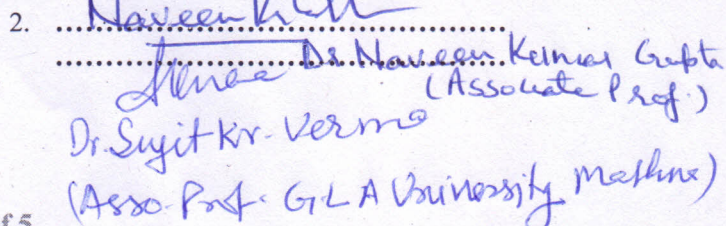 2. Naveen
Dr Naveen Kumar Gupta
(Associate Prof.)
Dr. Sujit Kr. Verma
(Asso. Prof. GLA University Mathura)
f 5